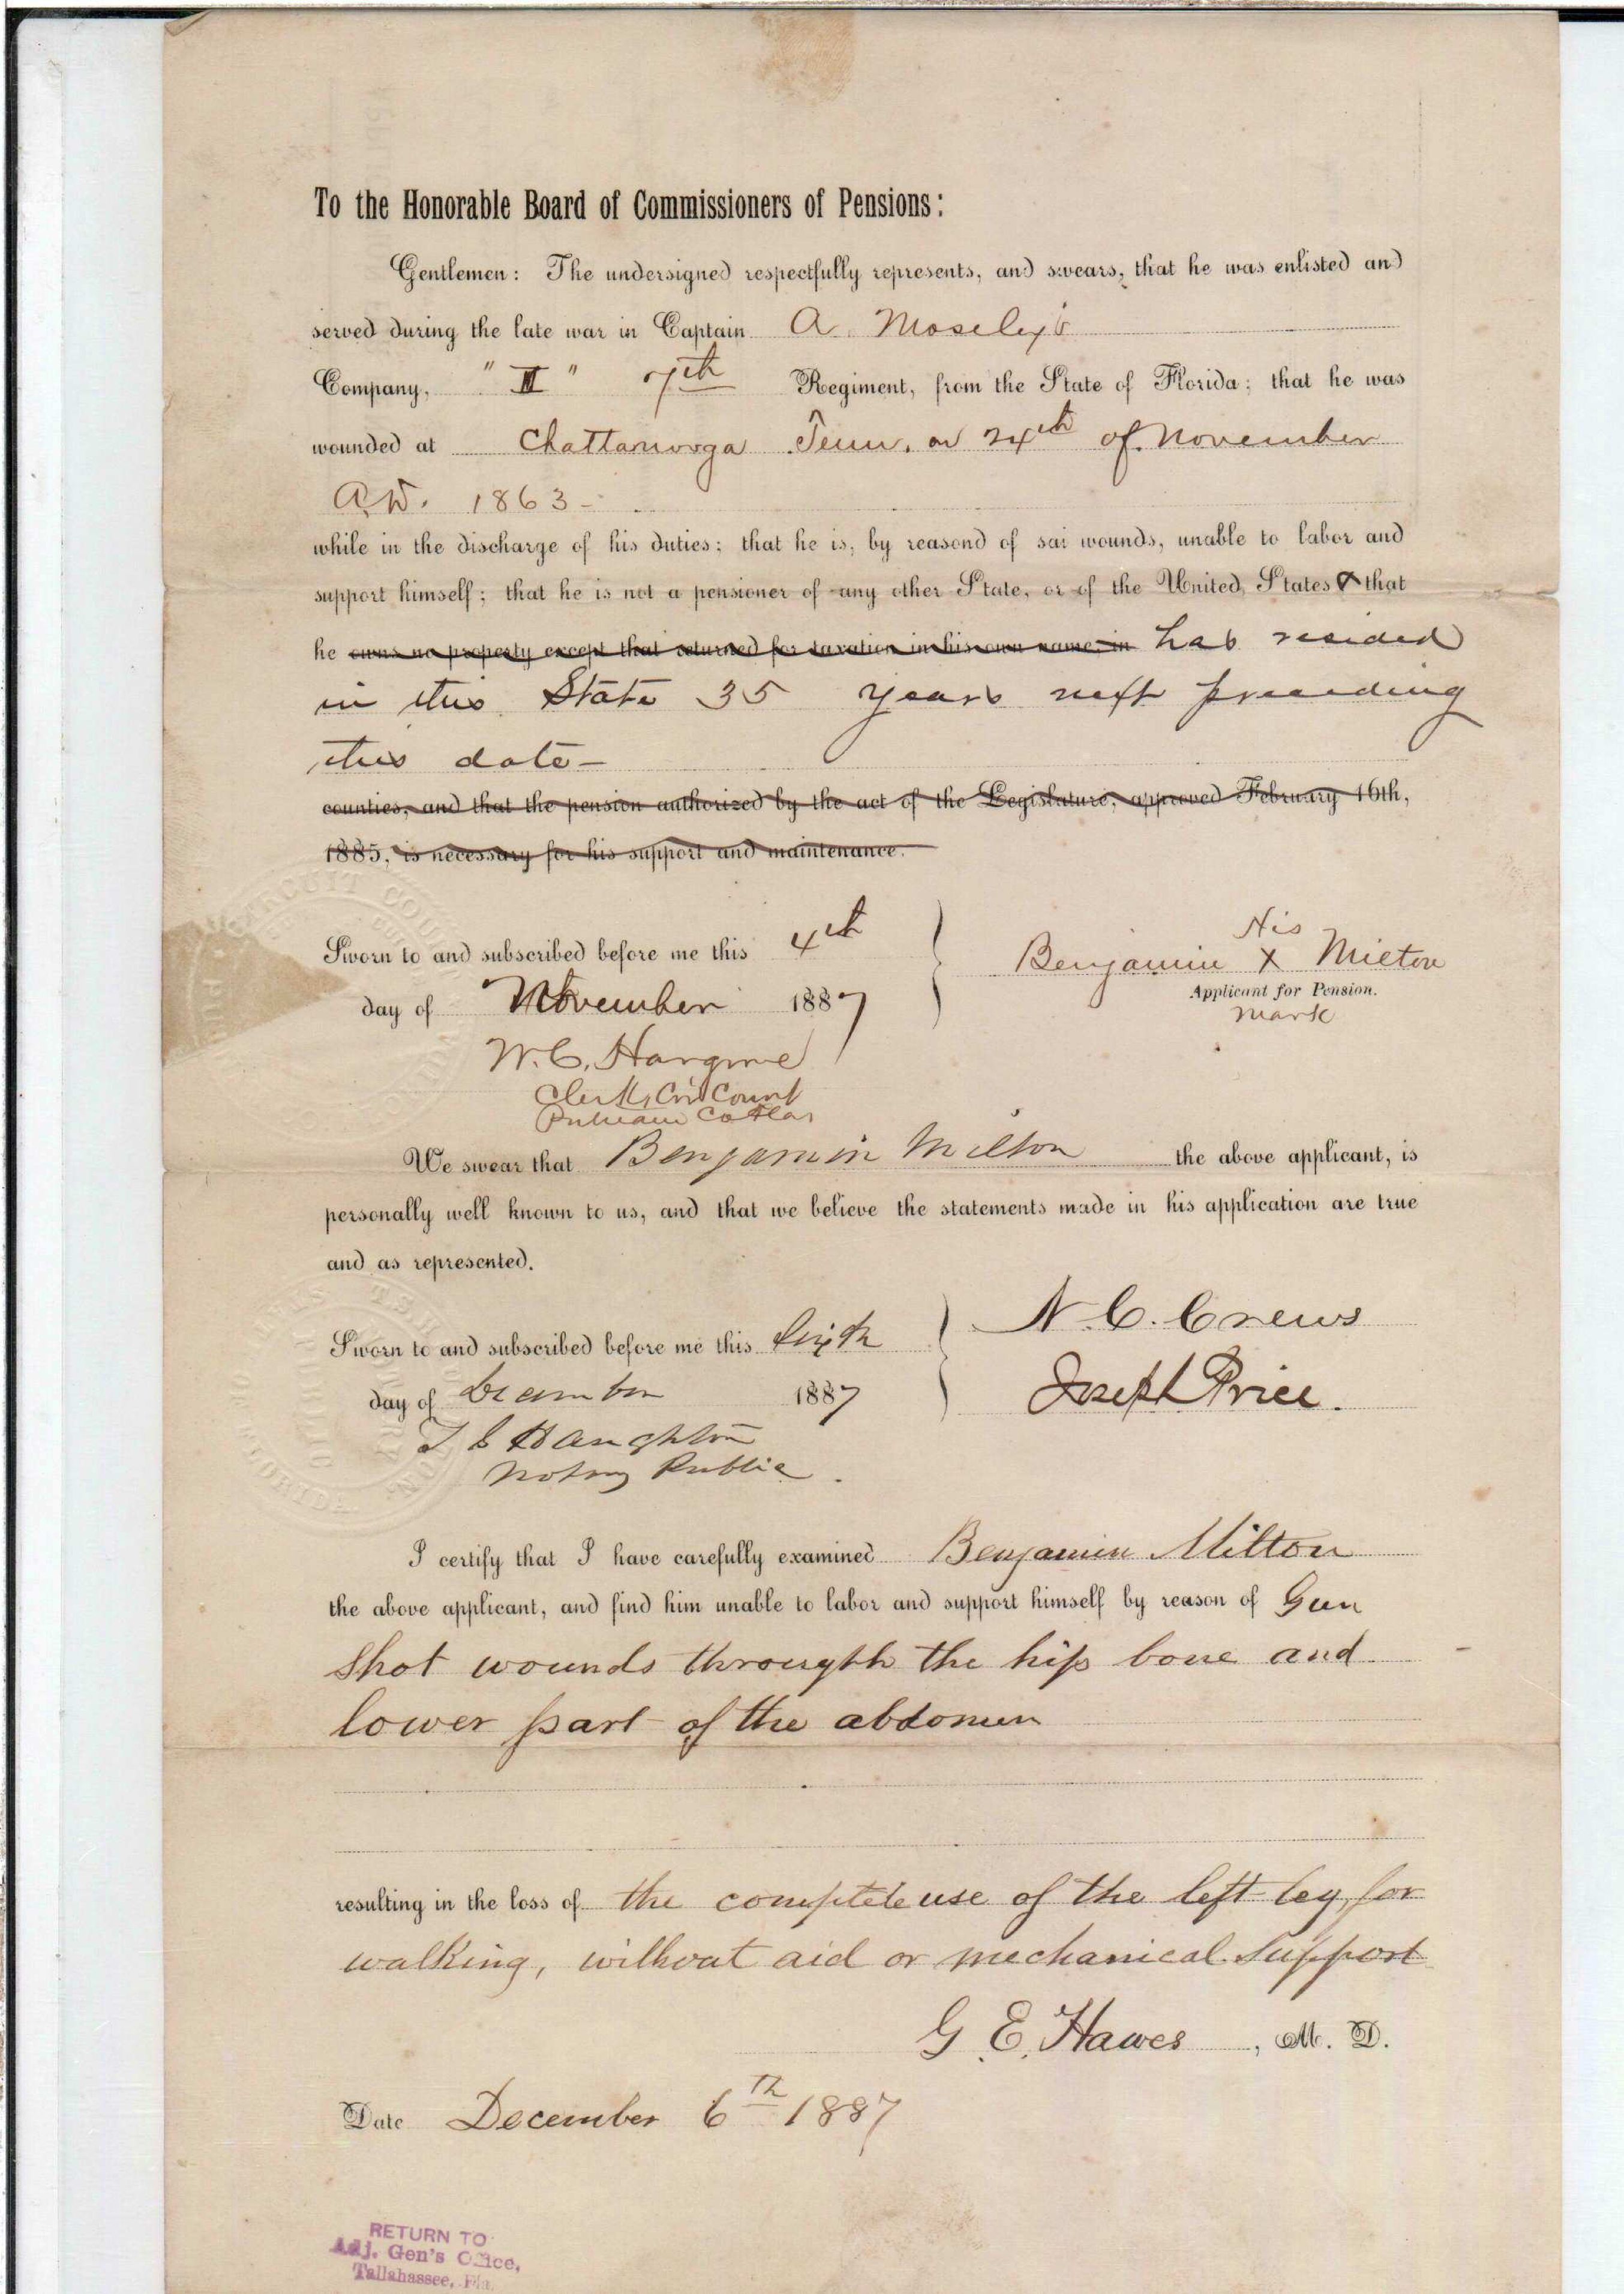 To the Honorable Board of Commissioners of Pensions:
Gentlemen: The undersigned respectfully represents, and swears, that he was enlisted and
served during the late war in Captain A. Moseley's
Company, " " 7th Regiment, from the State of Florida; that he was
wounded at Chattanooga Tenn. on 24th of November
A.D. 1863 -
while in the discharge of his duties; that he is, by reasond of sai wounds, unable to labor and
support himself; that he is not a pensioner of any other State, or of the United States & that
he owns no property except that returned for taxation in his own name, in has resided
in this State 35 years next preceding
this date -
counties, and that the pension authorized by the act of the Legislature, approved February 16th,
1885, is necessary for his support and maintenance.
Sworn to and subscribed before me this 4th
day of November 1887
His
Benjamin X Milton
Applicant for Pension.
mark
W. C. Hargrove
Clerk, Cir Court
Putnam Co Fla
We swear that Benjamin Milton the above applicant, is
personally well known to us, and that we believe the statements made in his application are true
and as represented.
N. C. Crews
Sworn to and subscribed before me this Sixth
day of December 1887
Joseph Price.
Haughton
Notary Public.
I certify that I have carefully examined Benjamin Milton
the above applicant, and find him unable to labor and support himself by reason of Gun
Shot wounds througth the hip bone and
lower part of the abdomen
resulting in the loss of the complete use of the left leg, for
walking, without aid or mechanical support
G. E. Hawes, M. D.
Date December 6th 1887
RETURN TO
Adj. Gen's Office,
Tallahassee, Fla.